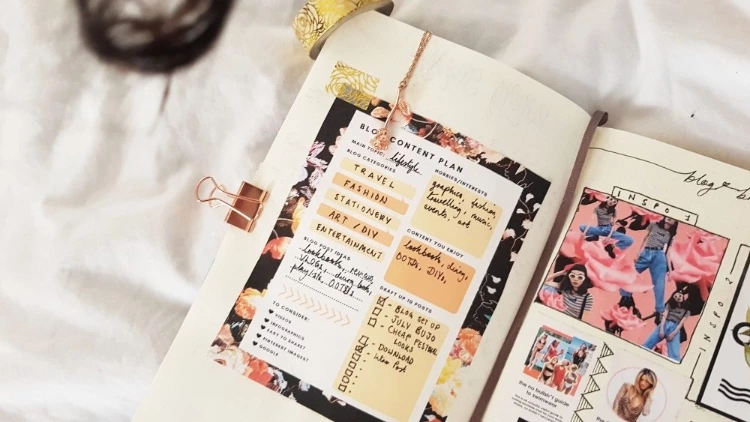 BLOG CONTENT PLAN
MAIN TOPIC: lifestyle
BLOG CATEGORIES
TRAVEL
FASHION
STATIONERY
ART / DIY
ENTERTAINMENT
BLOG POST IDEAS
lookbooks,
VLOGs,
playlists, OOTDs
TO CONSIDER:
VIDEOS
INFOGRAPHICS
EASY TO SHARE?
PINTEREST IMAGES?
GOOGLE
HOBBIES/INTERESTS
graphics, fashion,
travelling, music,
events, art
CONTENT YOU ENJOY
lookbooks, diary,
OOTDs, DIYs,
DRAFT UP 10 POSTS
- BLOG SET UP
- JULY BUJO
- CHEAP FESTIVAL
LOOKS
- DOWNLOAD
blog
INSPO 1
INSPO 2
the no bullsh*t guide
to swimwear
the